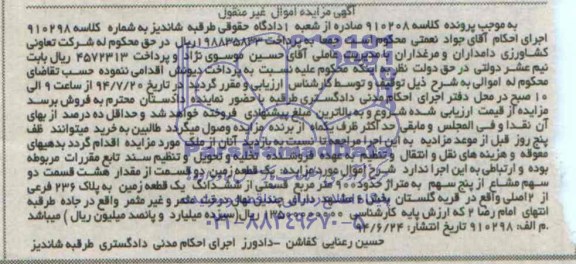 آگهی مزایده اموال غیر منقول
به موجب پرونده کلاسه ۹۱۰۲۰۸ صادره از شعبه ۱ دادگاه حقوقی طرقبه شاندیز به شماره کلاسه ۹۱۰۲۹۸
اجرای احکام آقای جواد نعمتی محکوم است به پرداخت ۱۹۸۸۳۵۸۳۳ ریال در حق محکوم له شرکت تعاونی
کشاورزی دامداران و مرغداران با مدیریت عاملی آقای حسین موسوی نژاد و پرداخت ۴۵۷۲۳۱۳ ریال بابت
نیم عشر دولتی در حق دولت نظر به اینکه محکوم علیه نسبت به پرداخت دیونش اقدامی ننموده حسب تقاضای
محکوم له اموالی به شرح ذیل توقیف و توسط کارشناس ارزیابی و مقرر گردید در تاریخ ۹۴/۷/۲۰ از ساعت ۹ الی
۱۰ صبح در محل دفتر اجرای احکام مدنی دادگستری طرقبه با حضور نماینده دادستان محترم به فروش برسد
مزایده از قیمت ارزیابی شده شروع و به بالاترین مبلغ پیشنهادی فروخته خواهد شد و حداقل ده درصد از بهای
آن نقدا و فی المجلس و مابقی حد اکثر ظرف یکماه از برنده مزایده وصول میگردد طالبین به خرید میتوانند ظف
پنج روز قبل از موعد مزادیه به این اجرا مراجعه تا نسبت به بازدید آنان از ملک مورد مزایده اقدام گردد بدهیهای
معوقه و هزینه های نقل و انتقال و تنظیم سند به عهده فروشنده تخلیه و تحویل و تنظیم سند تابع مقررات مربوطه
بوده و ارتباطی به این اجرا ندارد شرح اموال مورد مزایده: یک قطعه زمین دو قسمت از مقدار هشت قسمت دو
سهم مشاع از پنج سهم به متراژ حدود ۹۰۰ متر مربع قسمتی از ششدانگ یک قطعه زمین به پلاک ۲۳۶ فرعی
از ۲ اصلی واقع در قریه گلستان بخش ۶ مشهد دارای تعدادی درخت مثمر و غیر مثمر واقع در جاده طرقبه
انتهای امام رضا ۲ که ارزش پایه کارشناسی ریال (سیزده میلیارد و پانصد میلیون ریال) میباشد
م الف: ۹۱۰۲۹۸ تاریخ انتشار: ۹۴/۶/۲۴
۰۲۱-۸۸۳۴۹۶۷۰-۵
حسین رعنایی کفاشن - دادورز اجرای احکام مدنی دادگستری طرقبه شاندیز